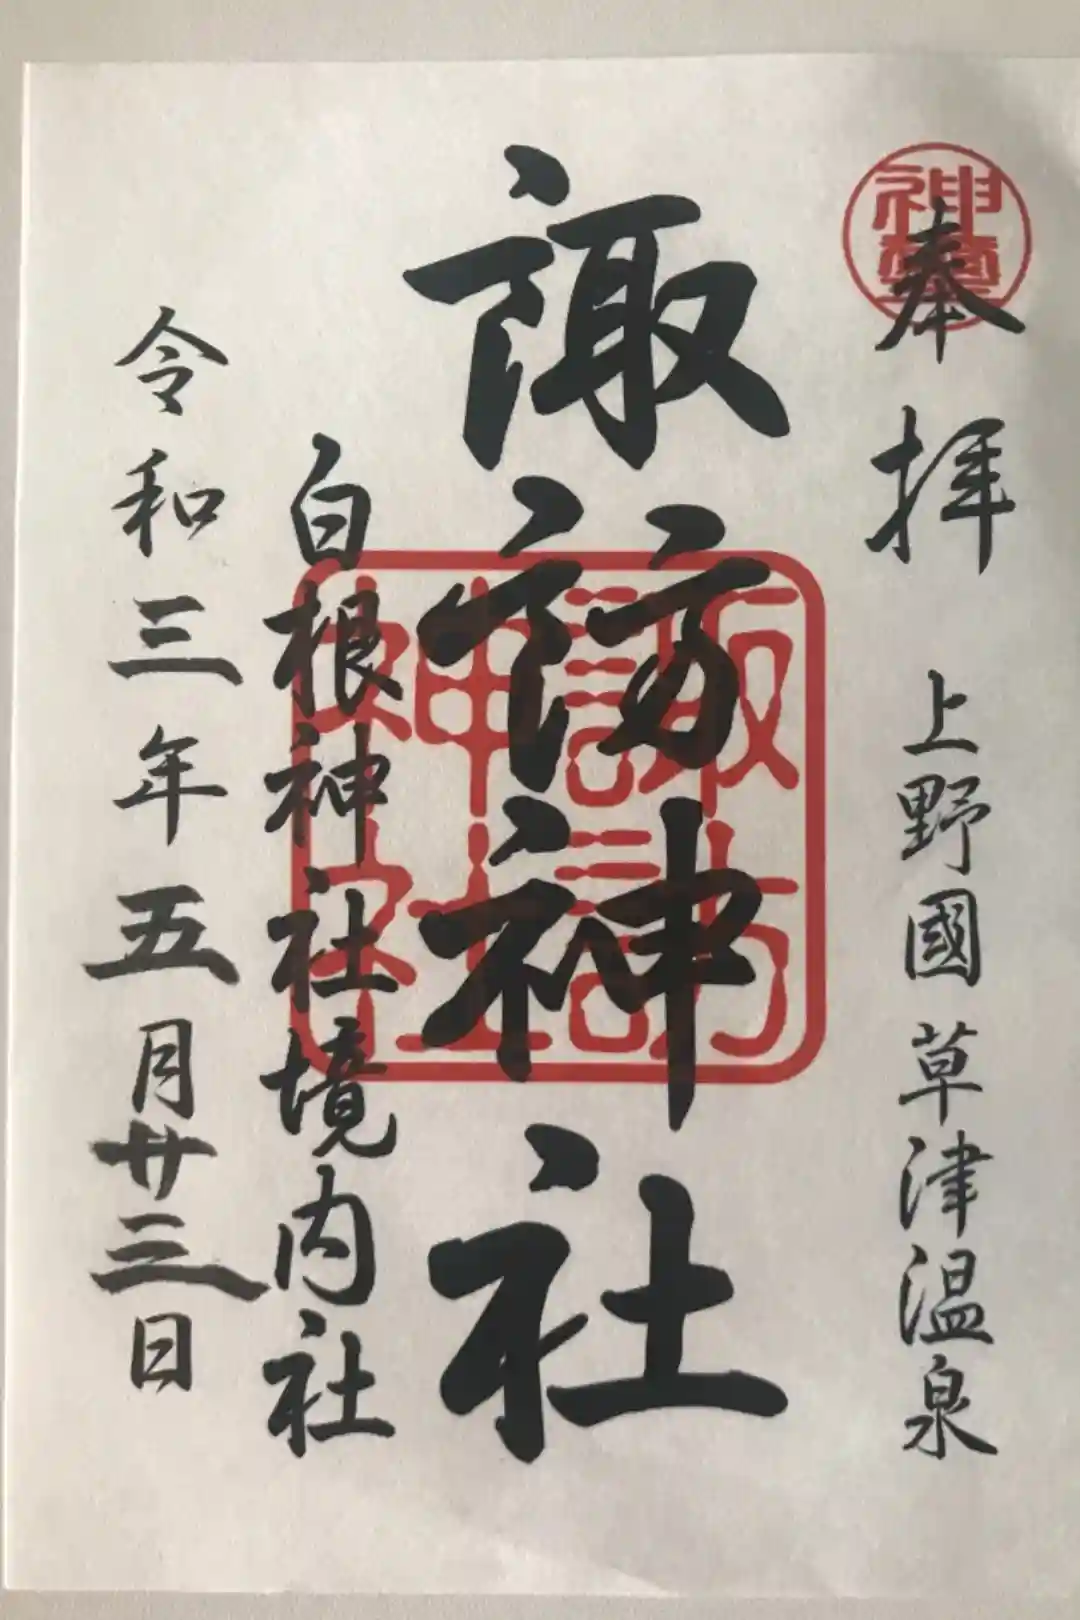 奉拝　上野國草津温泉
諏訪神社
白根神社境内社
令和三年五月廿三日
諏訪神社